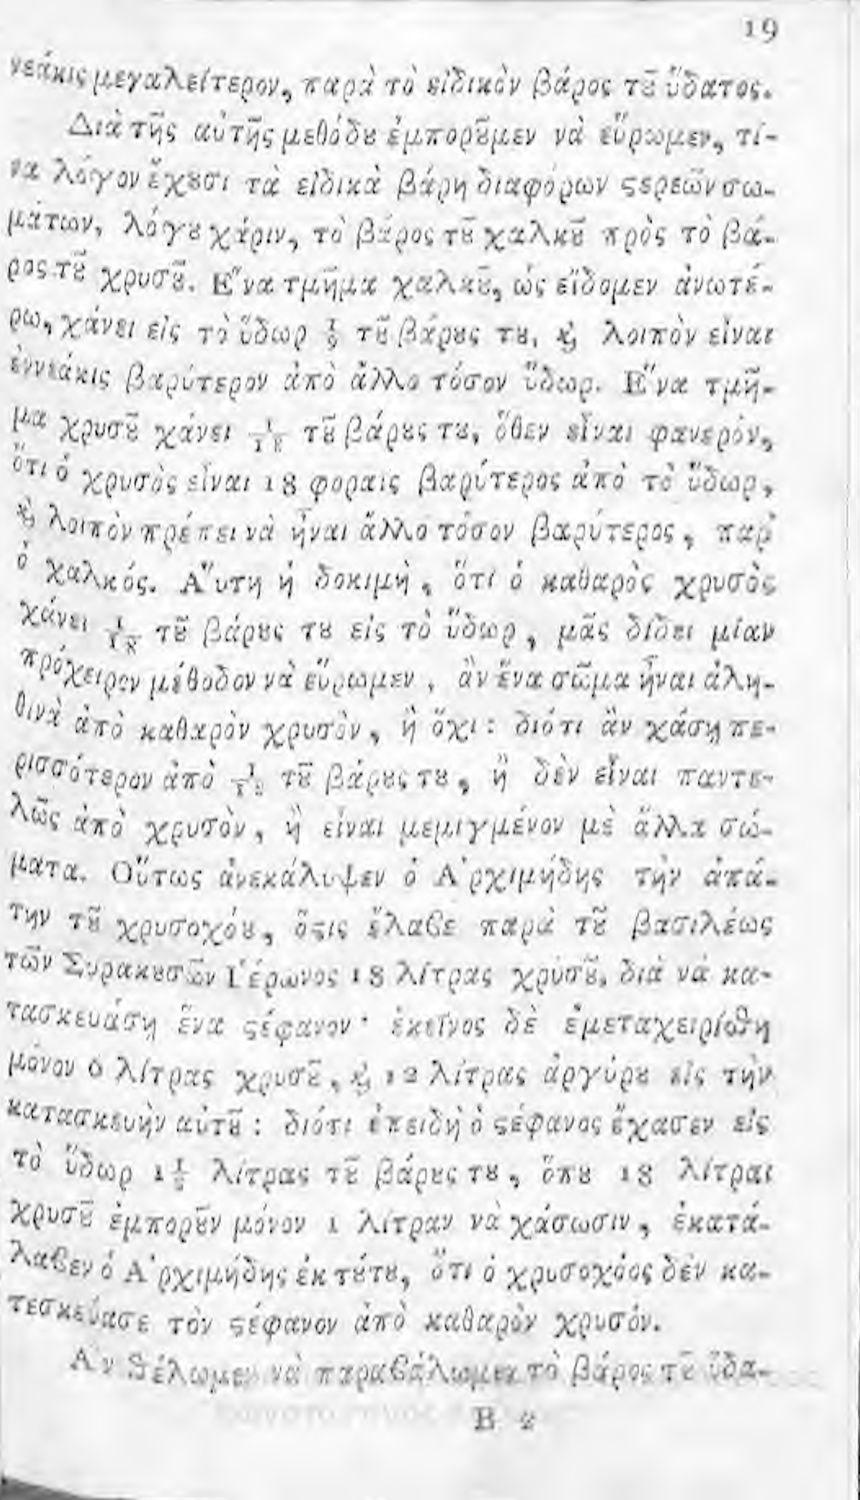 19
νεάκις μεγαλείτερον, παρὰ τὸ εἰδικὸν βάρος τȣ͂ ὕδατος.
Διὰ τῆς αὐτῆς μεθόδȣ ἐμπορȣ͂μεν νὰ εὕρωμεν, τί-
να λόγον ἔχȣσι τὰ εἰδικὰ βάρη διαφόρων ϛερεῶν σω-
μάτων, λόγȣ χάριν, τὸ βάρος τȣ͂ χαλκȣ͂ πρὸς τὸ βά-
ρος τȣ͂ χρυσȣ͂. Ἕνα τμῆμα χαλκȣ͂, ὡς εἴδομεν ἀνωτέ-
ρω, χάνει εἰς τὸ ὕδωρ 1/9 τȣ͂ βάρȣς τȣ, ϗ̀ λοιπὸν εἶναι
ἐννεάκις βαρύτερον ἀπὸ ἄλλο τόσον ὕδωρ. Ἕνα τμῆ-
μα χρυσȣ͂ χάνει 1/18 τȣ͂ βάρȣς τȣ, ὅθεν εἶναι φανερὸν,
ὅτι ὁ χρυσὸς εἶναι 18 φοραῖς βαρύτερος ἀπὸ τὸ ὕδωρ,
ϗ̀ λοιπὸν πρέπει νὰ ᾖναι ἄλλο τόσον βαρύτερος, παρ'
ὁ χαλκός. Αὕτη ἡ δοκιμὴ, ὅτι ὁ καθαρὸς χρυσὸς
χάνει 1/18 τȣ͂ βάρȣς τȣ εἰς τὸ ὕδωρ, μᾶς δίδει μίαν
πρόχειρον μέθοδον νὰ εὕρωμεν, ἂν ἕνα σῶμα ᾖναι ἀλη-
θινὰ ἀπὸ καθαρὸν χρυσὸν, ἢ ὄχι: διότι ἂν χάσῃ πε-
ρισσότερον ἀπὸ 1/18 τȣ͂ βάρȣς τȣ, ἢ δὲν εἶναι παντε-
λῶς ἀπὸ χρυσὸν, ἢ εἶναι μεμιγμένον μὲ ἄλλα σώ-
ματα. Οὕτως ἀνεκάλυψεν ὁ Ἀρχιμήδης τὴν ἀπά-
την τȣ͂ χρυσοχόȣ, ὅϛις ἔλαβε παρὰ τȣ͂ βασιλέως
τῶν Συρακȣσῶν Γέρωνος 18 λίτρας χρυσȣ͂, διὰ νὰ κα-
τασκευάσῃ ἕνα ϛέφανον· ἐκεῖνος δὲ ἐμεταχειρίσθη
μόνον 6 λίτρας χρυσȣ͂, ϗ̀ 12 λίτρας ἀργύρȣ εἰς τὴν
κατασκευὴν αὐτȣ͂: διότι ἐπειδὴ ὁ ϛέφανος ἔχασεν εἰς
τὸ ὕδωρ 1 1/2 λίτρας τȣ͂ βάρȣς τȣ, ὅπȣ 18 λίτραι
χρυσȣ͂ ἐμπορȣ͂ν μόνον 1 λίτραν νὰ χάσωσιν, ἐκατά-
λαβεν ὁ Ἀρχιμήδης ἐκ τȣ́τȣ, ὅτι ὁ χρυσοχόος δὲν κα-
τεσκεύασε τὸν ϛέφανον ἀπὸ καθαρὸν χρυσόν.
Ἂν θέλωμεν νὰ παραβάλωμεν τὸ βάρος τȣ͂ ὕδα-
Β 2